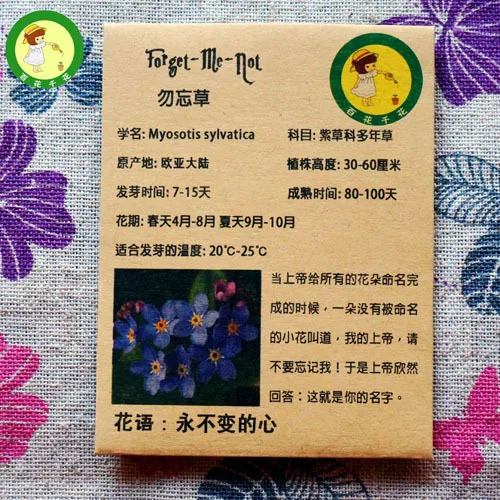 百花千花
Forget-Me-Not
勿忘草
百花千花
学名: Myosotis sylvatica 科目: 紫草科多年草
原产地: 欧亚大陆 植株高度: 30-60厘米
发芽时间: 7-15天 成熟时间: 80-100天
花期: 春天4月-8月 夏天9月-10月
适合发芽的温度: 20℃-25℃
当上帝给所有的花朵命名完
成的时候，一朵没有被命名
的小花叫道，我的上帝，请
不要忘记我！于是上帝欣然
回答：这就是你的名字。
花语：永不变的心